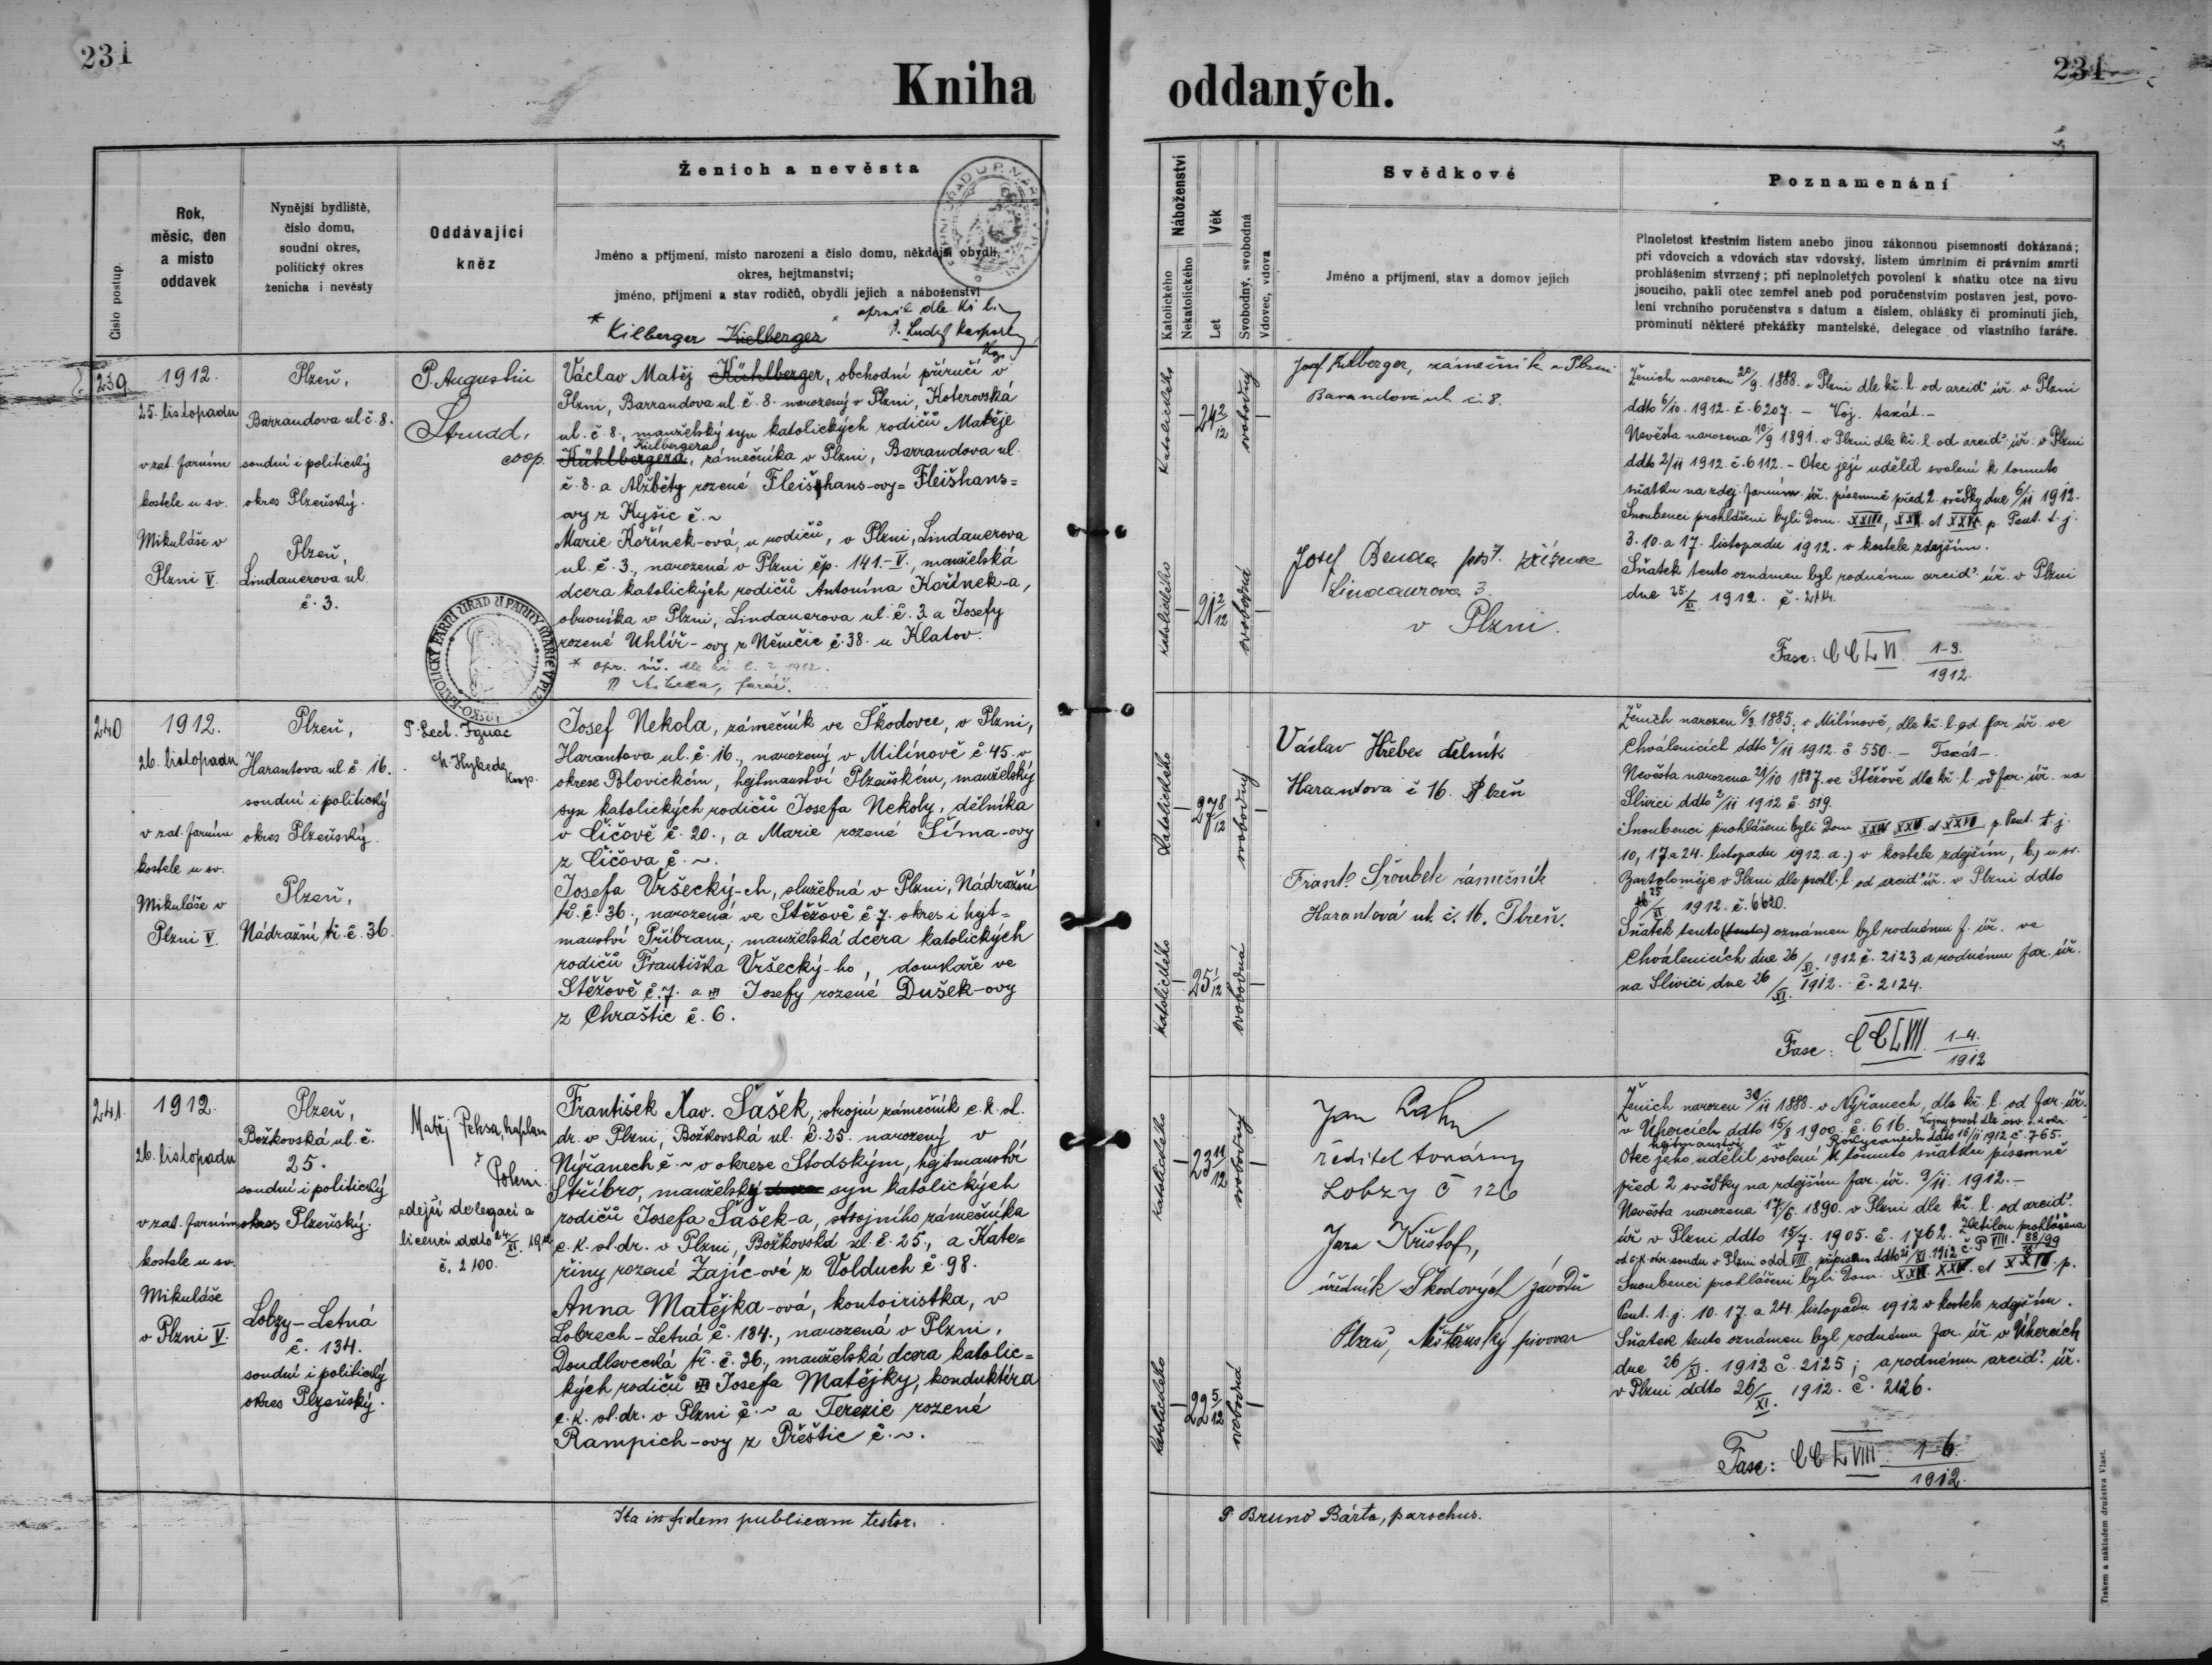 231
Kniha
oddaných.
231
Číslo postup.
Rok,
měsíc, den
a místo
oddavek
Nynější bydliště,
číslo domu,
soudní okres,
politický okres
ženicha i nevěsty
Oddávající
kněz
Ženich a nevěsta
Jméno a příjmení, místo narození a číslo domu, někdejší obydlí,
okres, hejtmanství;
jméno, příjmení a stav rodičů, obydlí jejich a náboženství
* Kilberger Kielberger
239.
1912.
25. listopadu
v zat. farním
kostele u sv.
Mikuláše v
Plzni V.
Plzeň,
Barrandova ul. č. 8.
soudní i politický
okres Plzeňský.
Plzeň,
Lindauerova ul.
č. 3.
P. Augustin
Strudd,
coop.
Václav Matěj Kühlberger, obchodní příručí v
Plzni, Barrandova ul. č. 8. narozený v Plzni, Koterovská
ul. č. 8., manželský syn katolických rodičů Matěje
Kielbergera
Kühlbergera, zámečníka v Plzni, Barrandova ul.
č. 8. a Alžběty rozené Fleišhans-ovy= Fleišhans=
ovy z Kyšic č. ~
Marie Kořínek-ová, u rodičů, v Plzni, Lindauerova
ul. č. 3., narozená v Plzni čp. 141.-V., manželská
dcera katolických rodičů Antonína Kořínek-a,
obuvníka v Plzni, Lindauerova ul. č. 3. a Josefy
rozené Uhlíř-ovy z Němčic č. 38. u Klatov.
240
1912.
26. listopadu
v zat. farním
kostele u sv.
Mikuláše v
Plzni V.
Plzeň,
Harantova ul. č. 16.
soudní i politický
okres Plzeňský.
Plzeň,
Nádražní tř. č. 36.
Josef Nekola, zámečník ve Škodovce, v Plzni,
Harantova ul. č. 16., narozený v Milínově č. 45. v
okrese Blovickém, hejtmanství Plzeňském, manželský
syn katolických rodičů Josefa Nekoly, dělníka
v Číčově č. 20., a Marie rozené Šíma-ovy
z Číčova č. ~.
Josefa Vršecký-ch, služebná v Plzni, Nádražní
tř. č. 36., narozená ve Stěžově č. 7. okres i hejt=
manství Příbram, manželská dcera katolických
rodičů Františka Vršecký-ho, domkáře ve
Stěžově č. 7. a Josefy rozené Dušek-ovy
z Chraštic č. 6.
241.
1912.
26. listopadu
v zat. farním
kostele u sv.
Mikuláše
v Plzni V.
Plzeň,
Božkovská ul. č.
25.
soudní i politický
okres Plzeňský.
Lobzy-Letná
č. 134.
soudní i politický
okres Plzeňský.
Matěj Pehsa, kaplan
v Plzni
zdejší delegací a
licencí ddto 24/XI. 1912
č. 2100.
František Xav. Šašek, strojní zámečník c. k. st.
dr. v Plzni, Božkovská ul. č. 25. narozený v
Nýřanech č. ~ v okrese Stodským, hejtmanství
Stříbro, manželský syn katolických
rodičů Josefa Šašek-a, strojního zámečníka
c. k. st. dr. v Plzni, Božkovská ul. č. 25., a Kate=
řiny rozené Zajíc-ové z Volduch č. 98.
Anna Matějka-ová, kontoiristka, v
Lobzech-Letná č. 134., narozená v Plzni,
Doudlevecká tř. č. 36., manželská dcera katolic=
kých rodičů Josefa Matějky, konduktéra
c. k. st. dr. v Plzni č. ~ a Terezie rozené
Rampich-ovy z Přeštic č. ~.
Ita in fidem publicam testor.
Náboženství
Katolického
Nekatolického
Věk
Let
Svobodný, svobodná
Vdovec, vdova
Svědkové
Jméno a příjmení, stav a domov jejich
Poznamenání
Plnoletost křestním listem anebo jinou zákonnou písemností dokázaná;
při vdovcích a vdovách stav vdovský, listem úmrtním či právním smrti
prohlášením stvrzený; při neplnoletých povolení k sňatku otce na živu
jsoucího, pakli otec zemřel aneb pod poručenstvím postaven jest, povo-
lení vrchního poručenstva s datum a číslem, ohlášky či prominutí jich,
prominutí některé překážky manželské, delegace od vlastního faráře.
katolického
24 2/12
svobodný
katolického
21 2/12
svobodná
Josef Kilberger, zámečník v Plzni
Barandova ul. č. 8.
Josef Benda
Lindaurova 3.
v Plzni.
Ženich narozen 20/9. 1888. v Plzni dle kř. l. od arcid. úř. v Plzni
ddto 6/10. 1912. č. 6207. - Voj. taxát. -
Nevěsta narozena 10/9 1891. v Plzni dle kř. l. od arcid. úř. v Plzni
ddto 2/11 1912. č. 6112. - Otec její udělil svolení k tomuto
sňatku na zdej. farním úř. písemně před 2 svědky dne 6/11 1912.
Snoubenci prohlášeni byli Dom. XXIII, XXIV. et XXV. p. Pent. t. j.
3. 10. a 17. listopadu 1912. v kostele zdejším.
Sňatek tento oznámen byl rodnému arcid. úř. v Plzni
dne 25/XI. 1912. č. 2114.
Fasc: CCLVI. 1-3.
1912.
katolického
27 8/12
svobodný
katolického
25 1/12
svobodná
Václav Hřebec dělník
Harantova č 16. Plzeň
Frant. Sroubek zámečník
Harantová ul. č. 16. Plzeň.
Ženich narozen 6/3. 1885. v Milínově, dle kř. l. od far. úř. ve
Chválenicích ddto 2/11 1912. č. 550. - Taxát -
Nevěsta narozena 21/10 1887. ve Stěžově dle kř. l. od far. úř. na
Slivici ddto 2/11 1912 č. 519.
Snoubenci prohlášeni byli Dom. XXIV XXV. et XXVI p. Pent. t. j.
10, 17. a 24. listopadu 1912. a.) v kostele zdejším, b.) u sv.
Bartoloměje v Plzni dle prohl. l. od arcid. úř. v Plzni ddto
25/XI 1912. č. 6620.
Sňatek tento (tento) oznámen byl rodnému f. úř. ve
Chválenicích dne 26/XI. 1912 č. 2123 a rodnému far. úř.
na Slivici dne 26/XI. 1912. č. 2124.
Fasc: CCLVII. 1-4.
1912
katolického
23 11/12
svobodný
katolického
22 5/12
svobodná
Jan
ředitel továrny
Lobzy č 126
Jan Krištof,
úředník Škodových závodů
Plzeň, Měšťanský pivovar
Ženich narozen 30/11 1888. v Nýřanech, dle kř. l. od far. úř.
v Úhercích ddto 15/8 1900. č. 616.
hejtmanství Rokycanech ddto 16/11 1912 č. 765.
Otec jeho udělil svolení k tomuto sňatku písemně
před 2 svědky na zdejším far. úř. 9/11. 1912. -
Nevěsta narozena 17/6. 1890. v Plzni dle kř. l. od arcid.
úř v Plzni ddto 15/7. 1905. č. 1762. Zletilou prohlášena
od c. k. okr. soudu v Plzni odd. VIII. přípisem ddto 21/XI. 1912 č. P VIII. 88/99
Snoubenci prohlášeni byli Dom. XXIV. XXV. et XXVI. p.
Pent. t. j. 10. 17. a 24. listopadu 1912 v kostele zdejším.
Sňatek tento oznámen byl rodnému far. úř. v Úhercích
dne 26/XI. 1912 č. 2125; a rodnému arcid. úř.
v Plzni ddto 26/XI. 1912. č. 2126.
Fasc: CCLVIII. 1-6.
1912.
P. Bruno Bárta, parochus.
Tiskem a nákladem družstva Vlast.